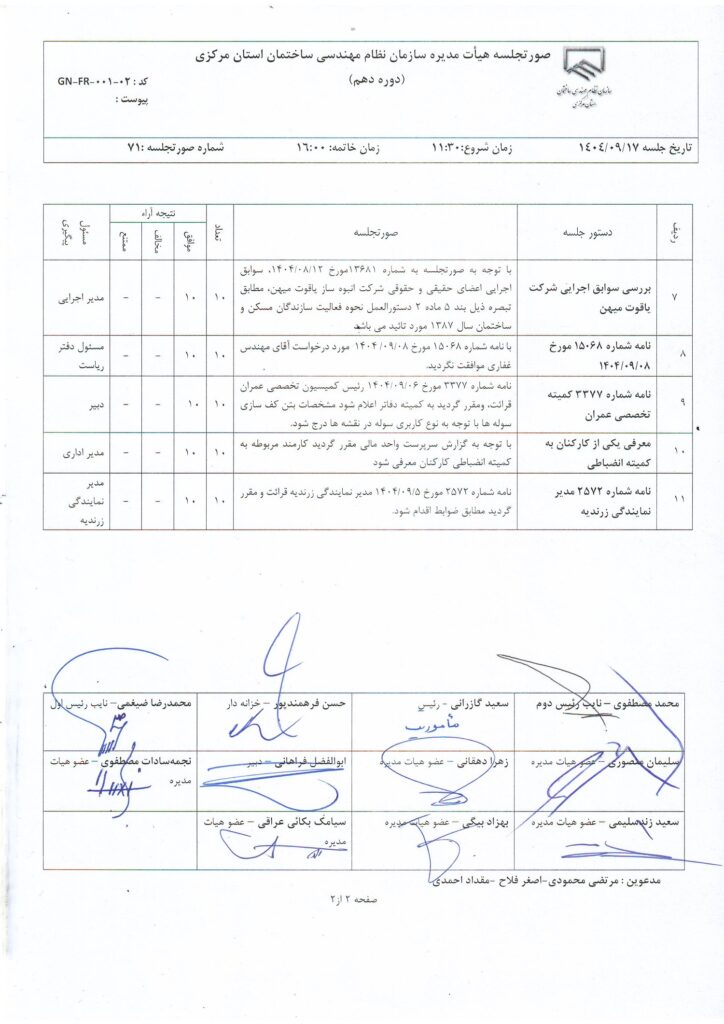 صورتجلسه هیأت مدیره سازمان نظام مهندسی ساختمان استان مرکزی
(دوره دهم)
کد : GN-FR-۰۰۱-۰۲
پیوست :
سازمان نظام مهندسی ساختمان
استان مرکزی
تاریخ جلسه ۱۴۰۴/۰۹/۱۷ زمان شروع:۱۱:۳۰ زمان خاتمه: ۱۶:۰۰ شماره صورتجلسه :۷۱
ردیف دستور جلسه صورتجلسه تعداد نتیجه آراء مسئول پیگیری
موافق مخالف ممتنع
۷ بررسی سوابق اجرایی شرکت یاقوت میهن
با توجه به صورتجلسه به شماره ۱۳۶۸۱مورخ ۱۴۰۴/۰۸/۱۲، سوابق
اجرایی اعضای حقیقی و حقوقی شرکت انبوه ساز یاقوت میهن، مطابق
تبصره ذیل بند ۵ ماده ۲ دستورالعمل نحوه فعالیت سازندگان مسکن و
ساختمان سال ۱۳۸۷ مورد تائید می باشد
۱۰ ۱۰ – – مدیر اجرایی
۸ نامه شماره ۱۵۰۶۸ مورخ ۱۴۰۴/۰۹/۰۸
با نامه شماره ۱۵۰۶۸ مورخ ۱۴۰۴/۰۹/۰۸ مورد درخواست آقای مهندس
غفاری موافقت نگردید.
۱۰ ۱۰ – – مسئول دفتر ریاست
۹ نامه شماره ۳۳۷۷ کمیته تخصصی عمران
نامه شماره ۳۳۷۷ مورخ ۱۴۰۴/۰۹/۰۶ رئیس کمیسیون تخصصی عمران
قرائت، ومقرر گردید به کمیته دفاتر اعلام شود مشخصات بتن کف سازی
سوله ها با توجه به نوع کاربری سوله در نقشه ها درج شود.
۱۰ ۱۰ – – دبیر
۱۰ معرفی یکی از کارکنان به کمیته انضباطی
با توجه به گزارش سرپرست واحد مالی مقرر گردید کارمند مربوطه به
کمیته انضباطی کارکنان معرفی شود
۱۰ ۱۰ – – مدیر اداری
۱۱ نامه شماره ۲۵۷۲ مدیر نمایندگی زرندیه
نامه شماره ۲۵۷۲ مورخ ۱۴۰۴/۰۹/۵ مدیر نمایندگی زرندیه قرائت و مقرر
گردید مطابق ضوابط اقدام شود.
۱۰ ۱۰ – – مدیر نمایندگی زرندیه
محمد مصطفوی – نایب رئیس دوم سعید گازرانی - رئیس حسن فرهمندپور – خزانه دار محمدرضا ضیغمی – نایب رئیس اول
مأموریت
سلیمان منصوری – عضو هیات مدیره زهرا دهقانی – عضو هیات مدیره ابوالفضل فراهانی – دبیر نجمه‌سادات مصطفوی – عضو هیات
مدیره
سعید زندسلیمی – عضو هیات مدیره بهزاد بیگی – عضو هیات مدیره سیامک بکائی عراقی – عضو هیات
مدیره
مدعوین : مرتضی محمودی-اصغر فلاح -مقداد احمدی
صفحه ۲ از۲